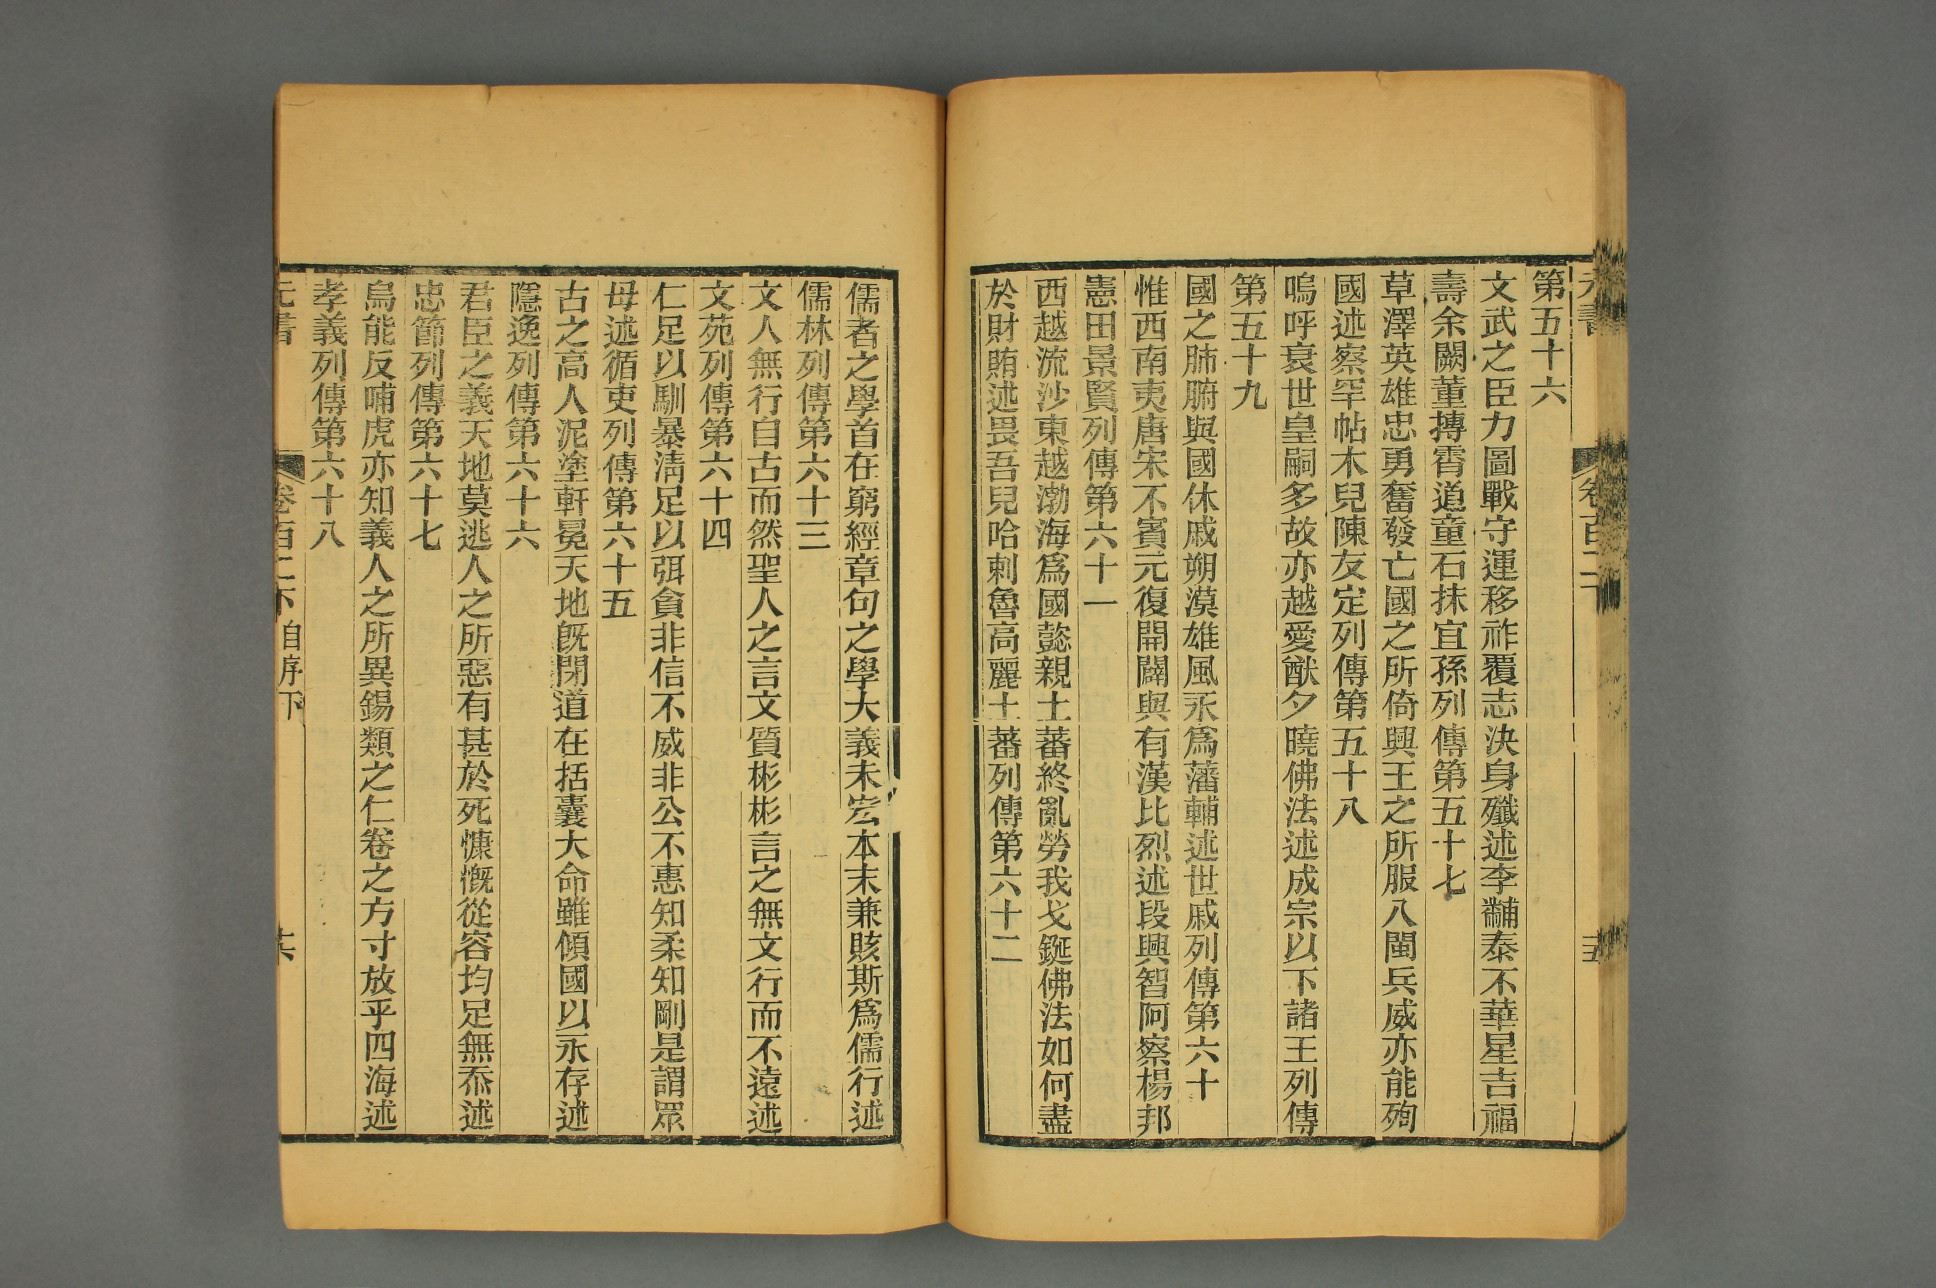 第五十六
文武之臣力圖戰守運移祚覆志決身殲述李黼泰不華星吉福
壽余闕董摶霄道童石抹宜孫列傳第五十七
草澤英雄忠勇奮發亡國之所倚興王之所服八閩兵威亦能殉
國述察罕帖木兒陳友定列傳第五十八
嗚呼衰世皇嗣多故亦越愛猷夕曉佛法述成宗以下諸王列傳
第五十九
國之肺腑與國休戚朔漠雄風永爲藩輔述世戚列傳第六十
惟西南夷唐宋不賓元復開闢與有漢比烈述段興智阿察楊邦
憲田景賢列傳第六十一
西越流沙東越渤海爲國懿親土蕃終亂勞我戈鋋佛法如何盡
於財賄述畏吾兒哈剌魯高麗土蕃列傳第六十二
儒者之學首在窮經章句之學大義未宏本末兼賅斯爲儒行述
儒林列傳第六十三
文人無行自古而然聖人之言文質彬彬言之無文行而不遠述
文苑列傳第六十四
仁足以馴暴清足以弭貪非信不威非公不惠知柔知剛是謂眾
母述循吏列傳第六十五
古之高人泥塗軒冕天地既閉道在括囊大命雖傾國以永存述
隱逸列傳第六十六
君臣之義天地莫逃人之所惡有甚於死慷慨從容均足無忝述
忠節列傳第六十七
烏能反哺虎亦知義人之所異錫類之仁卷之方寸放乎四海述
孝義列傳第六十八
元書 卷百二下 自序下 十六